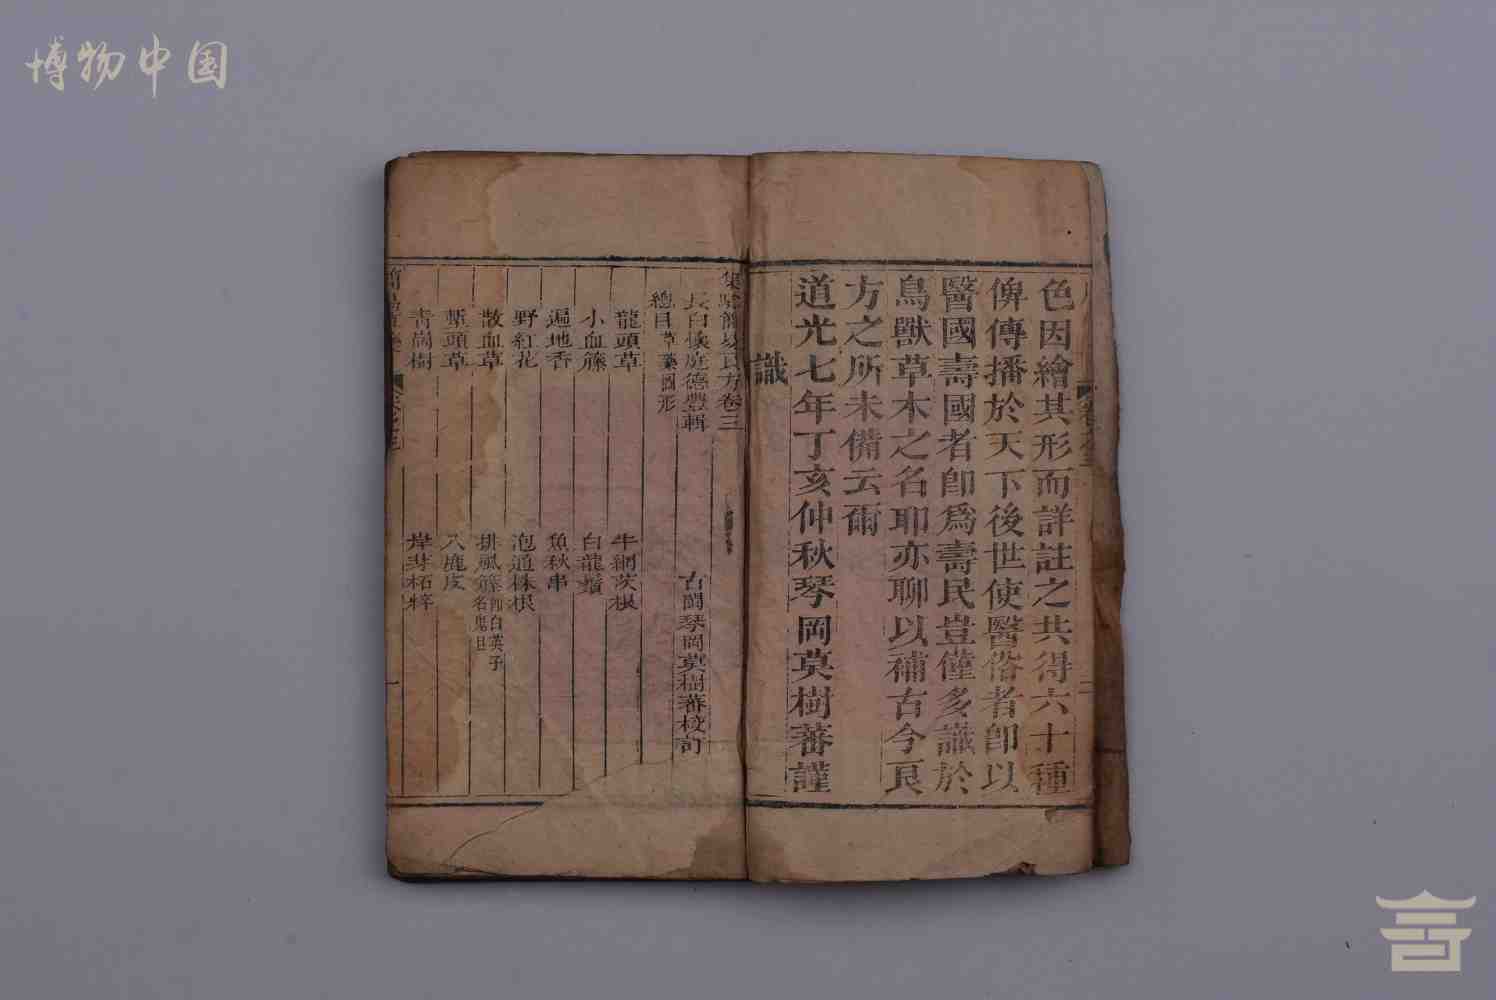 博物中国
色因繪其形而詳註之共得六十種
俾傳播於天下後世使醫俗者卽以
醫國壽國者卽爲壽民豈僅多識於
鳥獸草木之名耶亦聊以補古今良
方之所未備云爾
道光七年丁亥仲秋琴岡莫樹蕃謹
識
集驗簡易良方卷三
長白 庭德豐輯
古閩琴岡莫樹蕃校訂
總目草藥圖形
龍頭草 牛綱茨根
小血籐 白龍鬚
遍地香 魚秋串
野紅花 泡通株根
散血草 排風籐卽白英子名鬼目
塹頭草 八鹿皮
青崗樹